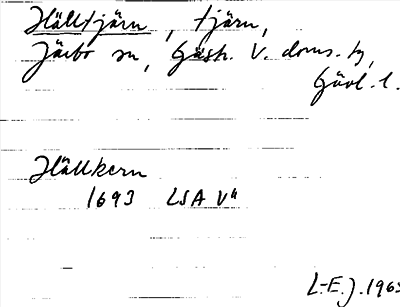 Hälltjärn, tjärn,
Järbo sn, Gästr. V. doms. tg,
Gävl. l.
Hällkern
1693 LSA V11
L-E.J. 1963